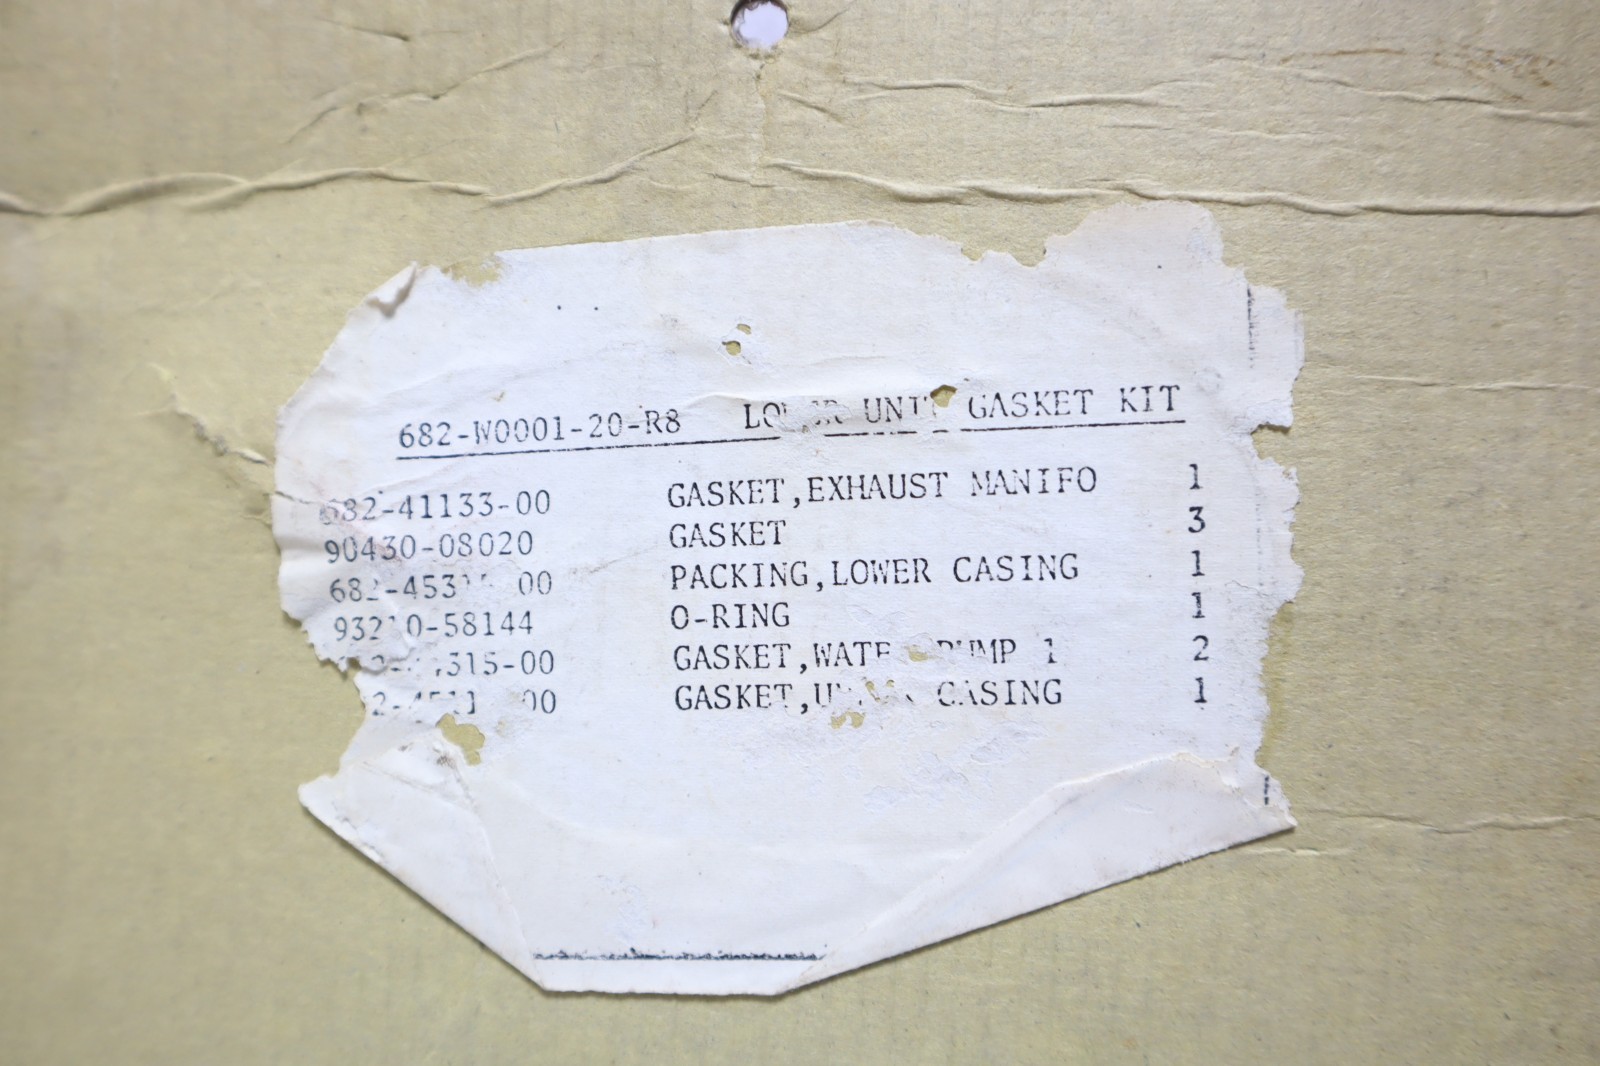 682-W0001-20-R8 LOWER UNIT GASKET KIT
682-41133-00 GASKET,EXHAUST MANIFO 1
90430-08020 GASKET 3
PACKING,LOWER CASING 1
93210-58144 O-RING 1
GASKET,WATER PUMP 1 2
GASKET, CASING 1